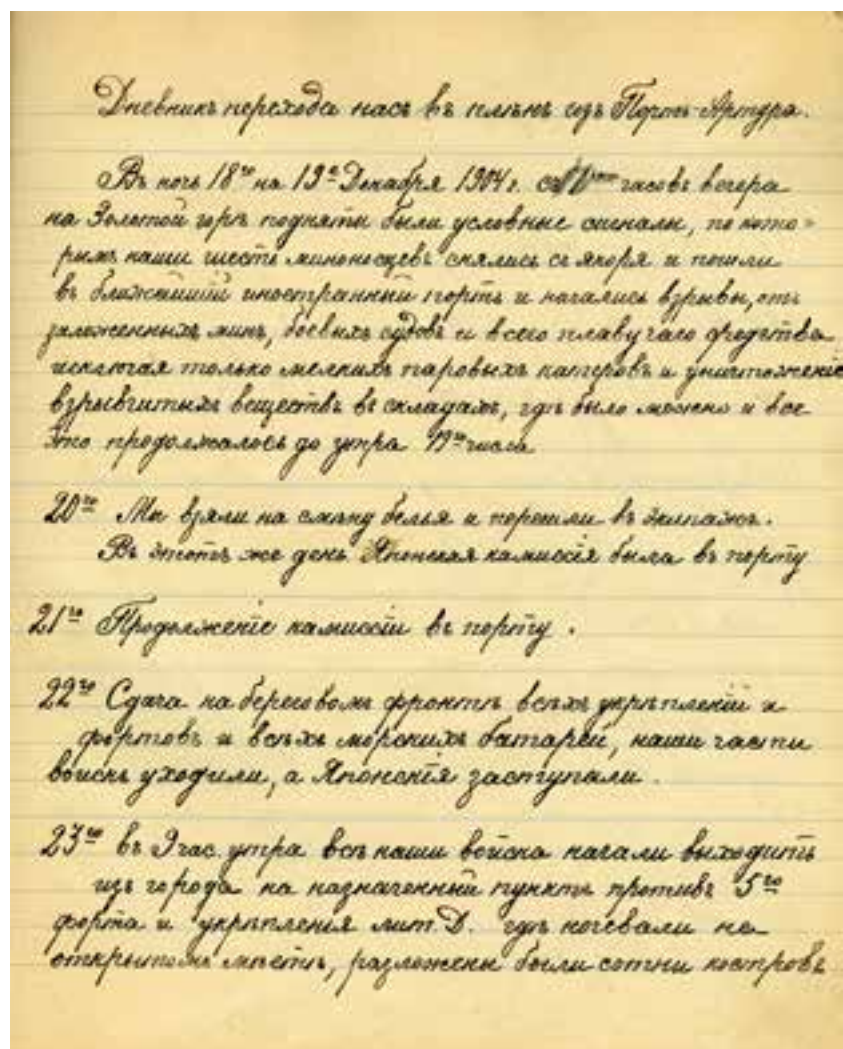 Дневникъ перехода насъ въ плѣнъ изъ Портъ-Артура.
Въ ночь 18го на 19е Декабря 1904 г. съ часовъ вечера
на Золотой горѣ подняты были условные сигналы, по кото-
рымъ наши шесть миноносцевъ снялись съ якоря и пошли
въ ближайшій иностранный портъ и начались взрывы, отъ
заложенныхъ минъ, боевыхъ судовъ и всего плавучаго средства
исключая только мелкихъ паровыхъ катеровъ и уничтоженіе
взрывчитыхъ веществъ въ складахъ, гдѣ было можно и все
это продолжалось до утра 19го числа
20го Мы взяли на смѣну белья и перешли въ экипажъ.
Въ этотъ же день Японская камиссія была въ порту
21го Продолженіе камиссіи въ порту.
22го Сдача на береговомъ фронтѣ всѣхъ укрѣпленій и
фортовъ и всѣхъ морскихъ батарей, наши части
войскъ уходили, а Японскія заступали.
23го въ 9 час. утра всѣ наши войска начали выходить
изъ города на назначенный пунктъ противъ 5го
форта и укрѣпленія лит. Д. гдѣ ночевали на
открытомъ мѣстѣ, разложены были сотни костровъ